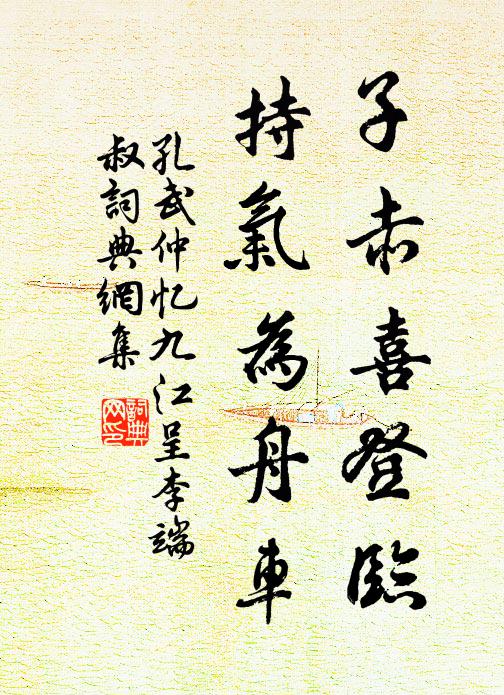 子亦喜登臨
持氣為舟車
孔武仲忆九江呈李端
叔詞典網集
詞典
网印